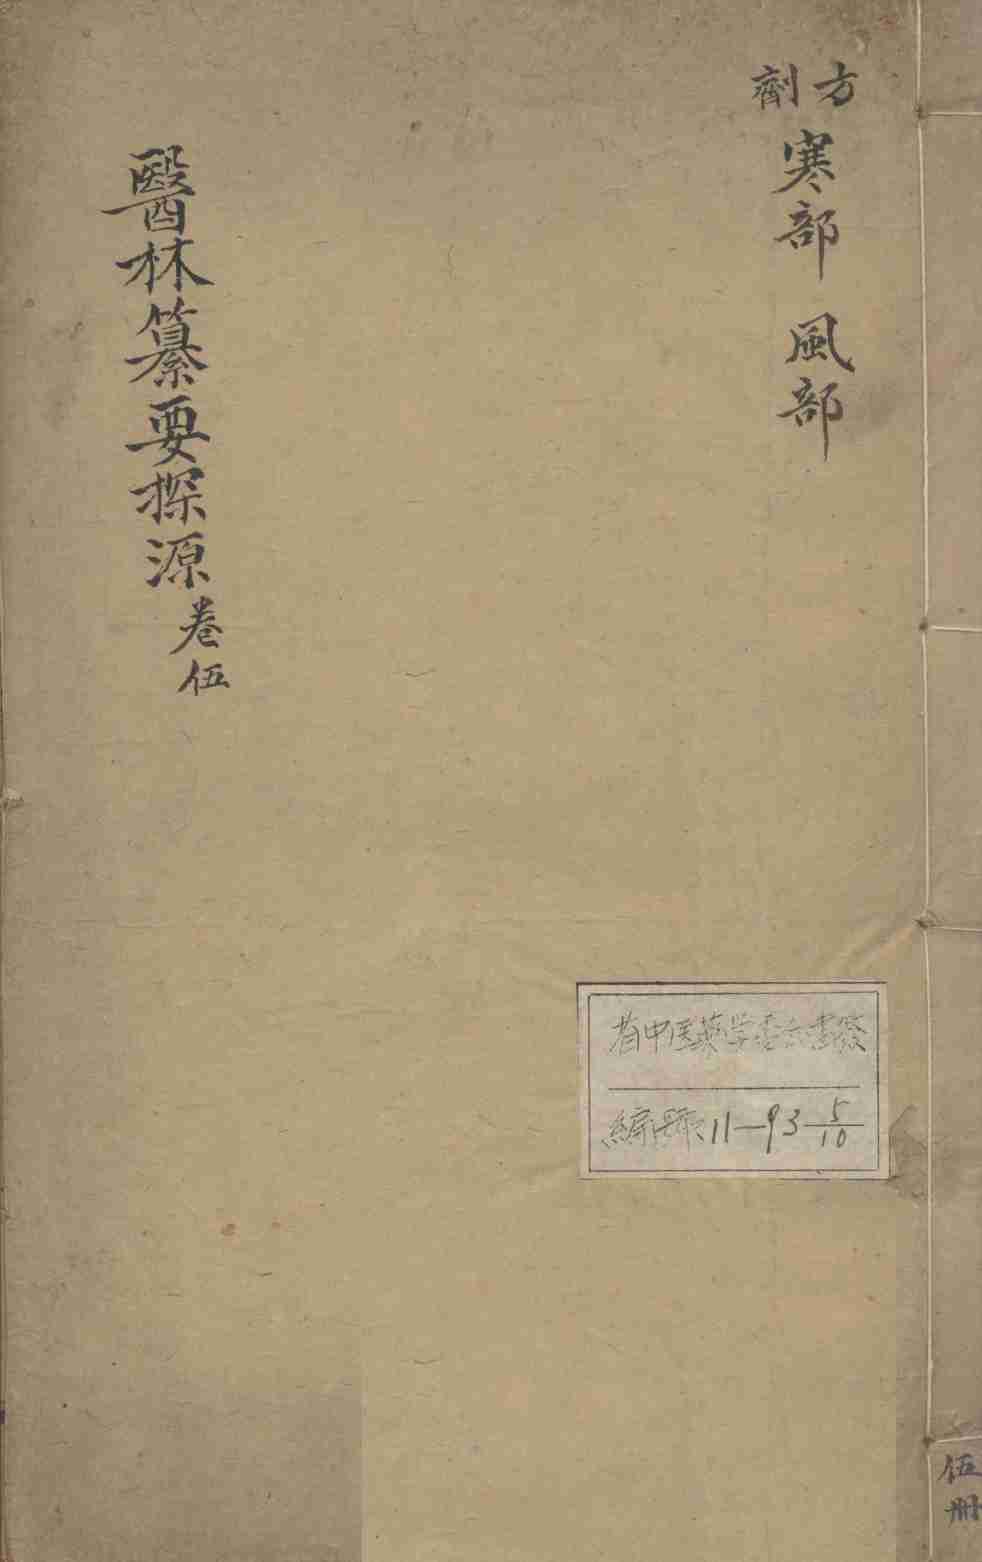 方劑
寒部 風部
醫林纂要探源 卷伍
省中医药学委员
編號:11—93 5/10
伍册